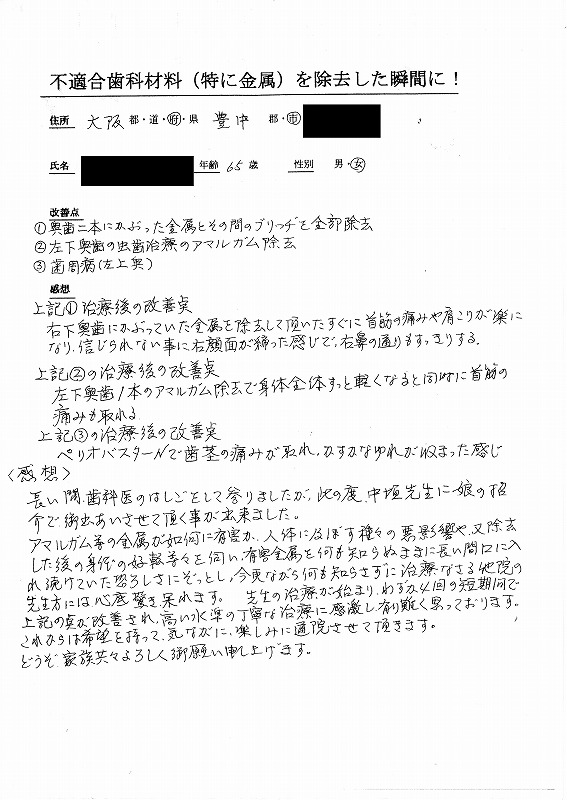 不適合歯科材料（特に金属）を除去した瞬間に！
住所 大阪 都・道・府・県 豊中 郡・市
氏名 年齢 65 歳 性別 男・女
改善点
①奥歯二本にかぶった金属とその間のブリッヂを全部除去
②左下奥歯の虫歯治療のアマルガム除去
③歯周病(左上奥)
感想
上記①治療後の改善点
右下奥歯にかぶっていた金属を除去して頂いたすぐに首筋の痛みや肩こりが楽に
なり、信じられない事に右顔面が締った感じで、右鼻の通りもすっきりする。
上記②の治療後の改善点
左下奥歯1本のアマルガム除去で身体全体すっと軽くなると同時に首筋の
痛みも取れる
上記③の治療後の改善点
ペリオバスターNで歯茎の痛みが取れ、かすかなゆれが収まった感じ
〈感想〉
長い間、歯科医のはしごをして参りましたが、此の度、中垣先生に娘の紹
介で御出あいさせて頂く事が出来ました。
アマルガム等の金属が如何に有害か、人体に及ぼす種々の悪影響や、又除去
した後の身体の好転等々を伺い、有害金属を何も知らぬままに長い間口に入
れ続けていた恐ろしさにぞっとし、今更ながら何も知らさずに治療なさる他院の
先生方には心底驚き呆れます。 先生の治療が始まり、わずか4回の短期間で
上記の点が改善され、高い水準の丁寧な治療に感激し有難く思っております。
これからは希望を持って、気ながに、楽しみに通院させて頂きます。
どうぞ、家族共々よろしく御願い申し上げます。